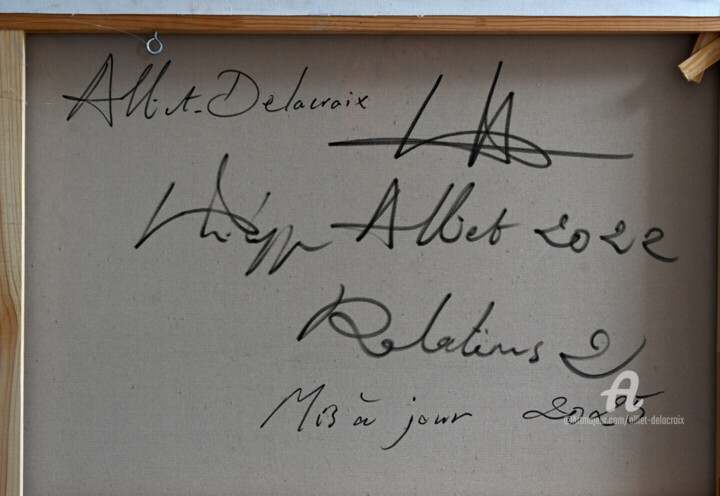 Alliet-Delacroix
Philippe Alliet 2022
Relations 2
Mis à jour 2025
artmajeur.com/alliet-delacroix